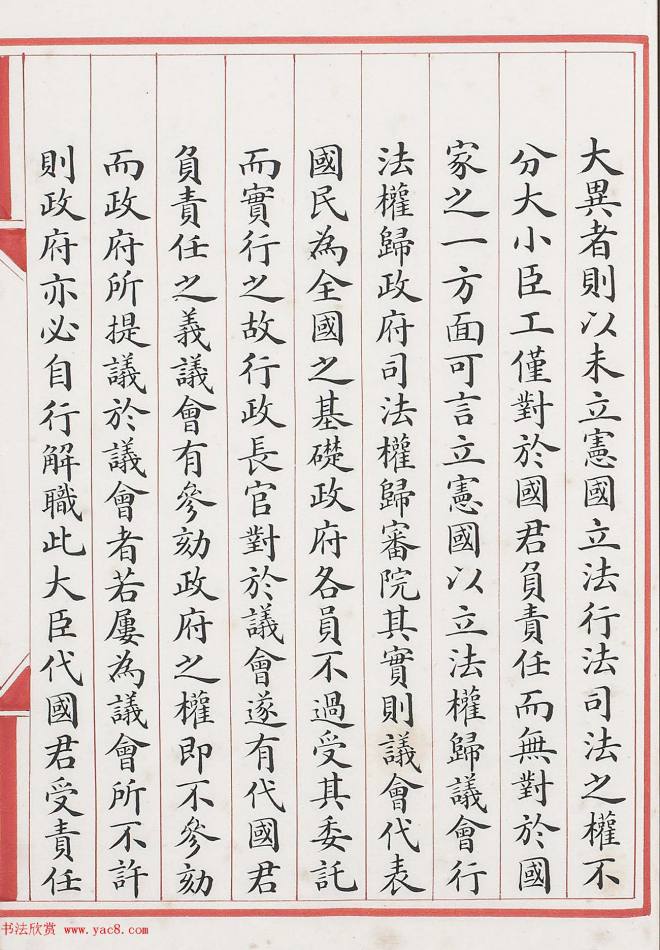 大異者則以未立憲國立法行法司法之權不
分大小臣工僅對於國君負責任而無對於國
家之一方面可言立憲國以立法權歸議會行
法權歸政府司法權歸審院其實則議會代表
國民為全國之基礎政府各員不過受其委託
而實行之故行政長官對於議會遂有代國君
負責任之義議會有參劾政府之權即不參劾
而政府所提議於議會者若屢為議會所不許
則政府亦必自行解職此大臣代國君受責任
书法欣赏 www.yac8.com